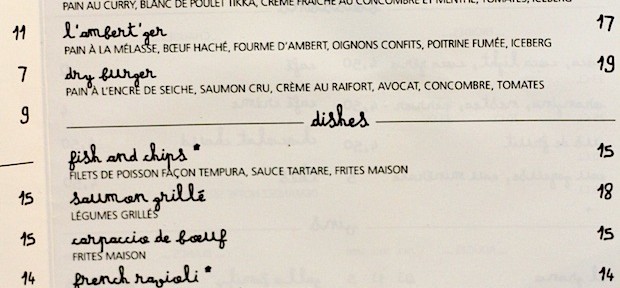 PAIN AU CURRY, BLANC DE POULET TIKKA, CRÈME FRAÎCHE AU CONCOMBRE ET MENTHE, TOMATES, ICEBERG
11 l'ambert'ger 17
PAIN À LA MÉLASSE, BŒUF HACHÉ, FOURME D'AMBERT, OIGNONS CONFITS, POITRINE FUMÉE, ICEBERG
7 dry burger 19
PAIN À L'ENCRE DE SEICHE, SAUMON CRU, CRÈME AU RAIFORT, AVOCAT, CONCOMBRE, TOMATES
9 dishes
fish and chips * 15
FILETS DE POISSON FAÇON TEMPURA, SAUCE TARTARE, FRITES MAISON
15 saumon grillé 18
LÉGUMES GRILLÉS
15 carpaccio de bœuf 15
FRITES MAISON
14 french ravioli * 14